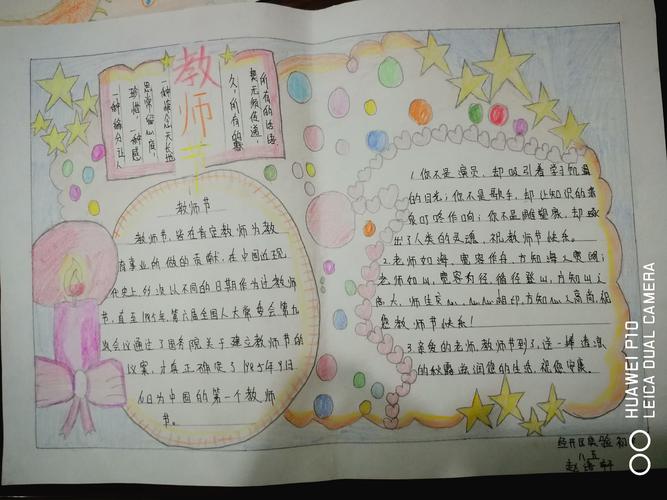 教师节
所有的话语
莫无须传递，
久，所有的
一种缘分让人
教师节
教师节，旨在肯定教师为教
育事业所做的贡献。在中国近现
代史上，分次以不同的日期作为过教师
节，直至1985年，第六届全国人大常委会第九
次会议通过了国务院关于建立教师节的
议案，才真正确定了1985年9月
10日为中国的第一个教师
节。
1.你不是演员，却吸引着学习饥渴
的目光；你不是歌手，却让知识的
叮咚作响；你不是雕塑家，却
出了人类的灵魂，祝教师节快乐。
2.老师如海，宽容作舟，方知海之宽阔；
老师如山，宽容为径，循径登山，方知山之
高大，师生交心，心心相印，方知心之高尚，祝
您教师节快乐！
3.亲爱的老师，教师节到了，送一捧清凉
的秋露滋润您的生活，祝您安康。
经开区实验初
八五
赵语轩
HUAWEI P10
LEICA DUAL CAMERA